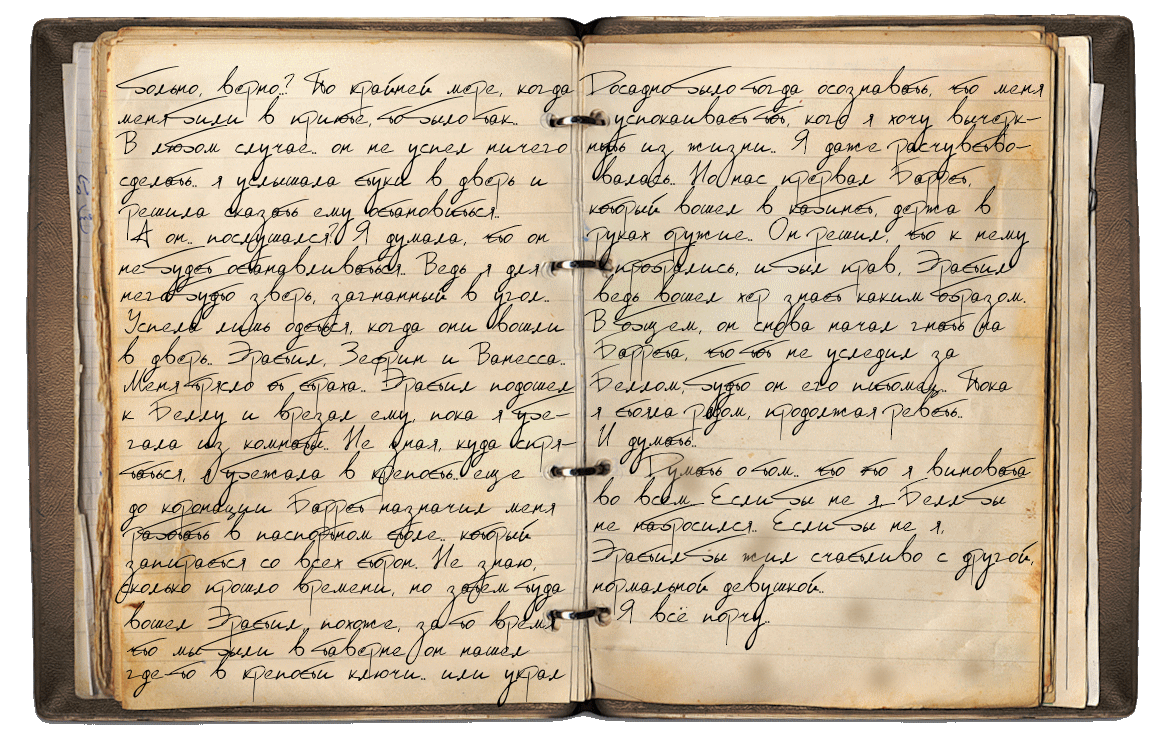 больно, верно..? По крайней мере, когда
меня били в приюте, то было так..
В любом случае.. он не успел ничего
сделать.. я услышала стуки в дверь и
решила сказать ему остановиться..
А он.. послушался? Я думала, что он
не будет останавливаться.. Ведь я для
него будто зверь, загнанный в угол..
Успела лишь одеться, когда они вошли
в дверь.. Эрастил, Зефрин и Ванесса..
Меня трясло от страха.. Эрастил подошел
к Беллу и врезал ему, пока я убе-
гала из комнаты.. Не зная, куда спря-
таться, я убежала в крепость.. еще
до коронации Баррет назначил меня
работать в паспортном столе.. который
запирается со всех сторон. Не знаю,
сколько прошло времени, но затем туда
вошел Эрастил, похоже, за то время
что мы были в таверне он нашел
где-то в крепости ключи.. или украл
Досадно было тогда осознавать, что меня
успокаивает тот, кого я хочу вычерк-
нуть из жизни.. Я даже расчувство-
валась.. Но нас прервал Баррет,
который вошел в кабинет, держа в
руках оружие.. Он решил, что к нему
пробрались, и был прав, Эрастил
ведь вошел хер знает каким образом.
В общем, он снова начал гнать на
Баррета, что тот не уследил за
Беллом, будто он его питомец.. Пока
я стояла рядом, продолжая реветь..
И думать..
Думать о том.. что это я виновата
во всем. Если бы не я, Белл бы
не набросился.. Если бы не я,
Эрастил бы жил счастливо с другой,
нормальной девушкой..
Я всё порчу..